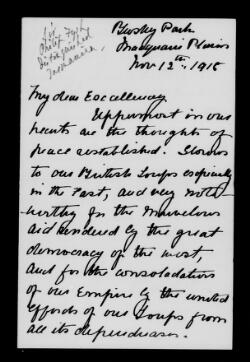 Bushy Park
Macquarie Plains
Nov 12th 1918
My dear Excellency
Uppermost in our
hearts are the thoughts of
peace established. Glorious
to our British troops especially
in the East, and very note-
worthy for the marvelous
aid rendered by the great
democracy of the west,
and for the consolidation
of our Empire by the united
efforts of our troops from
all its dependencies.